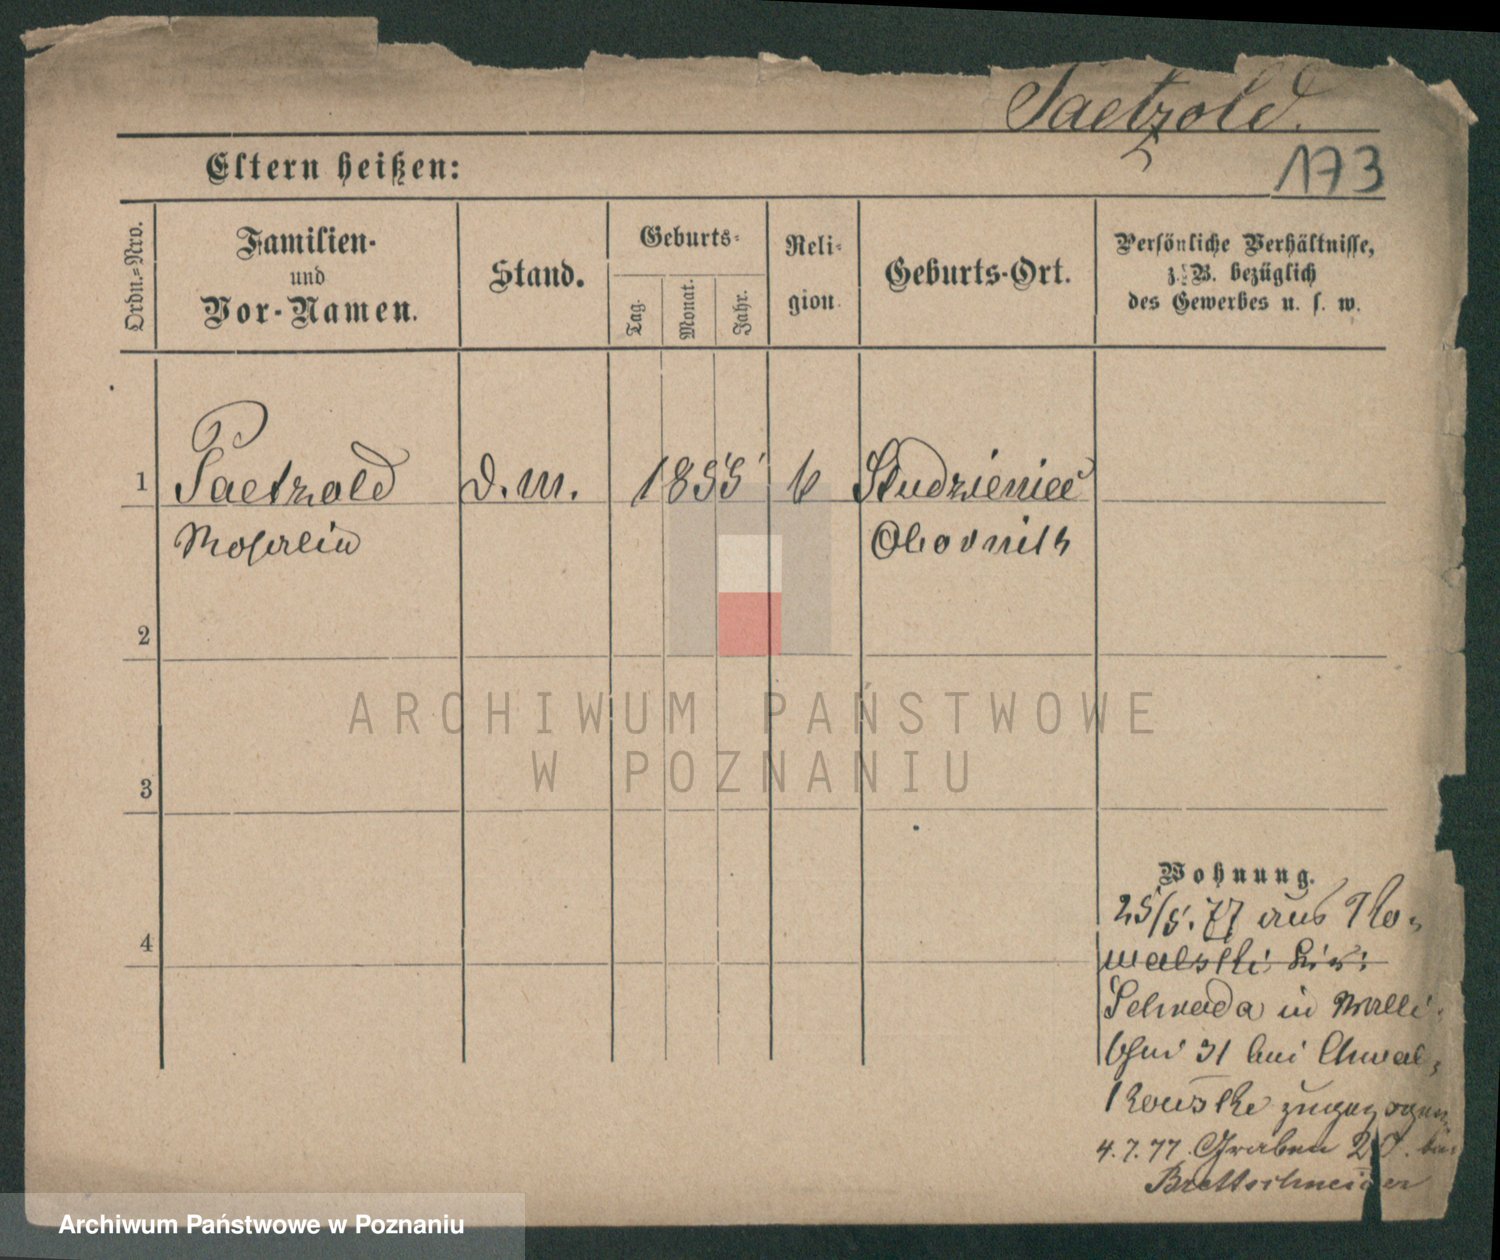 Paetzold.
173
Eltern heißen:
Ordn.-Nro.
Familien-
und
Vor-Namen.
Stand.
Geburts-
Tag.
Monat.
Jahr.
Reli-
gion.
Geburts-Ort.
Persönliche Verhältnisse,
z. B. bezüglich
des Gewerbes u. s. w.
1 Paetzold D. M. 1855 Studzieniec
Obornik
2
ARCHIWUM PAŃSTWOWE
W POZNANIU
3
Wohnung.
25/5. 77 aus
in Walli-
31 bei Chwal-
kowske zugezogen
4. 7. 77. Graben bei
Brettschneider
4
Archiwum Państwowe w Poznaniu